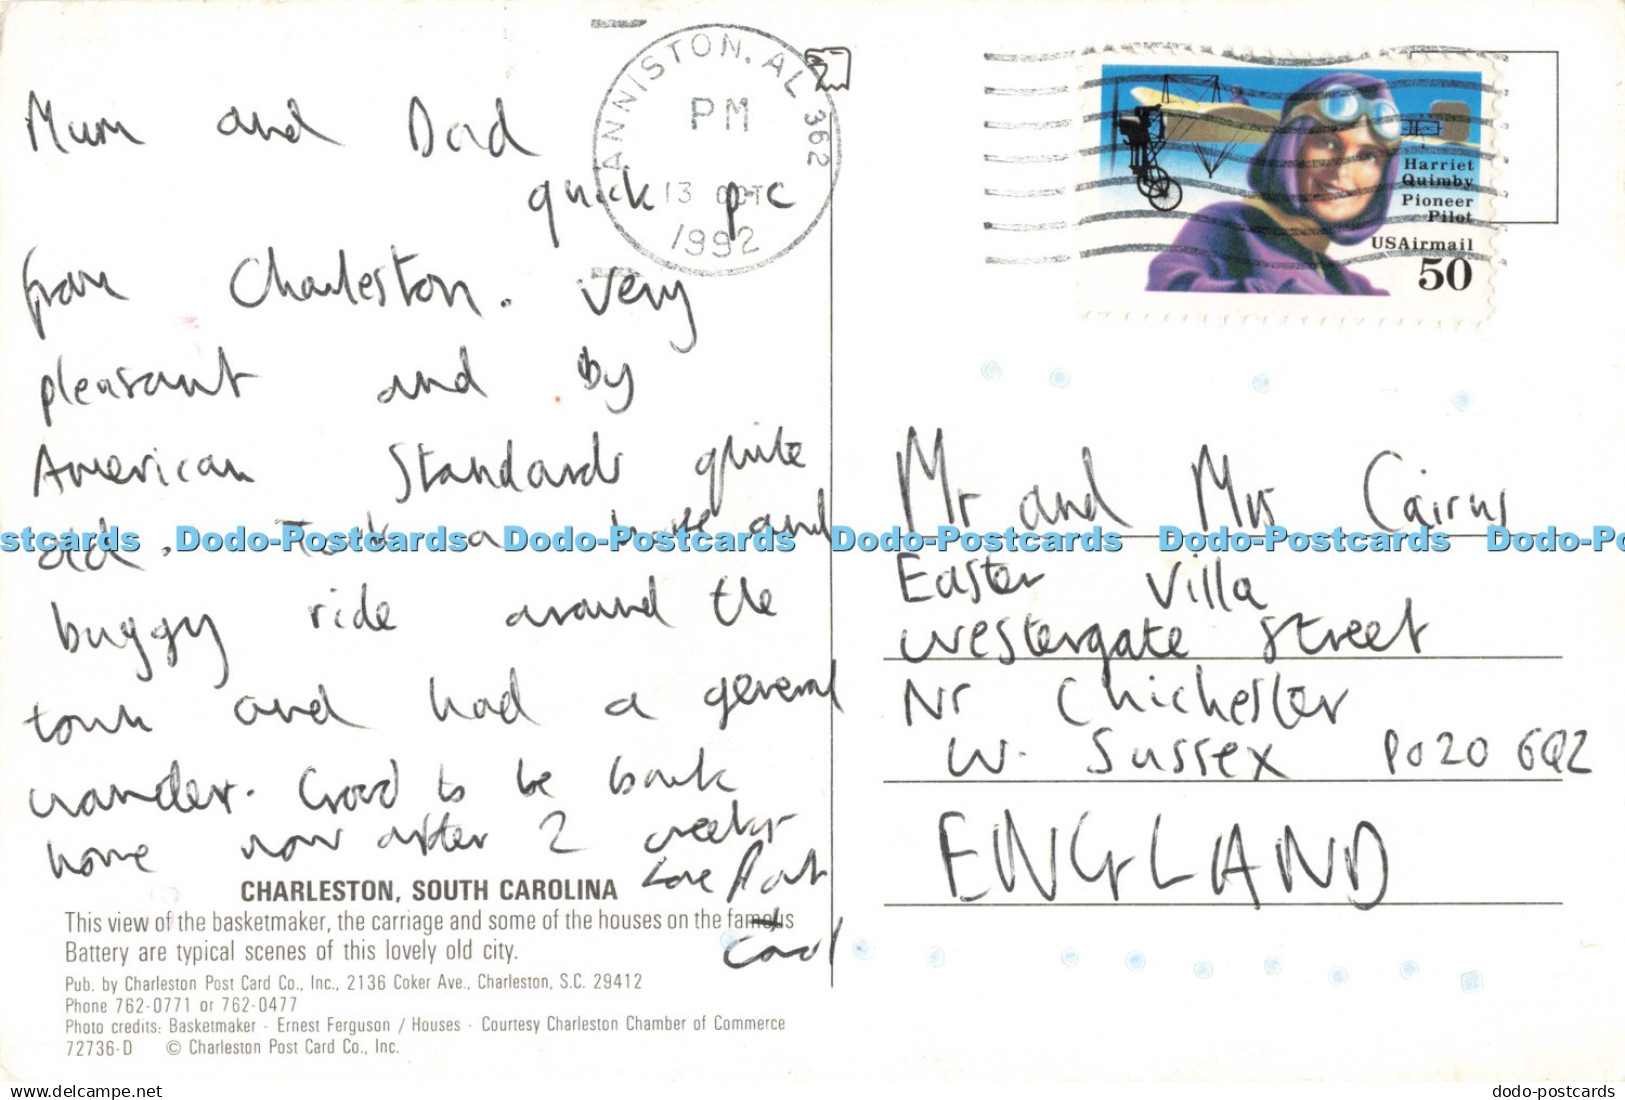 Mum and Dad
quick p-c
from Charleston. Very
pleasant and by
American Standards quite
old. Took a horse and
buggy ride around the
town and had a general
wander. Good to be back
home now after 2 weeks
Love
CHARLESTON, SOUTH CAROLINA
This view of the basketmaker, the carriage and some of the houses on the famous
Battery are typical scenes of this lovely old city.
Pub. by Charleston Post Card Co., Inc., 2136 Coker Ave., Charleston, S.C. 29412
Phone 762-0771 or 762-0477
Photo credits: Basketmaker - Ernest Ferguson / Houses - Courtesy Charleston Chamber of Commerce
72736-D © Charleston Post Card Co., Inc.
ANNISTON, AL 362
PM
13 OCT
1992
Harriet
Quimby
Pioneer
Pilot
USAirmail
50
Mr and Mrs Cairns
Easter Villa
Westergate Street
Nr Chichester
W. Sussex PO20 6QZ
ENGLAND
stcards Dodo-Postcards Dodo-Postcards Dodo-Postcards Dodo-Postcards Dodo-Po
the-world-of-postcards
dodo-postcards